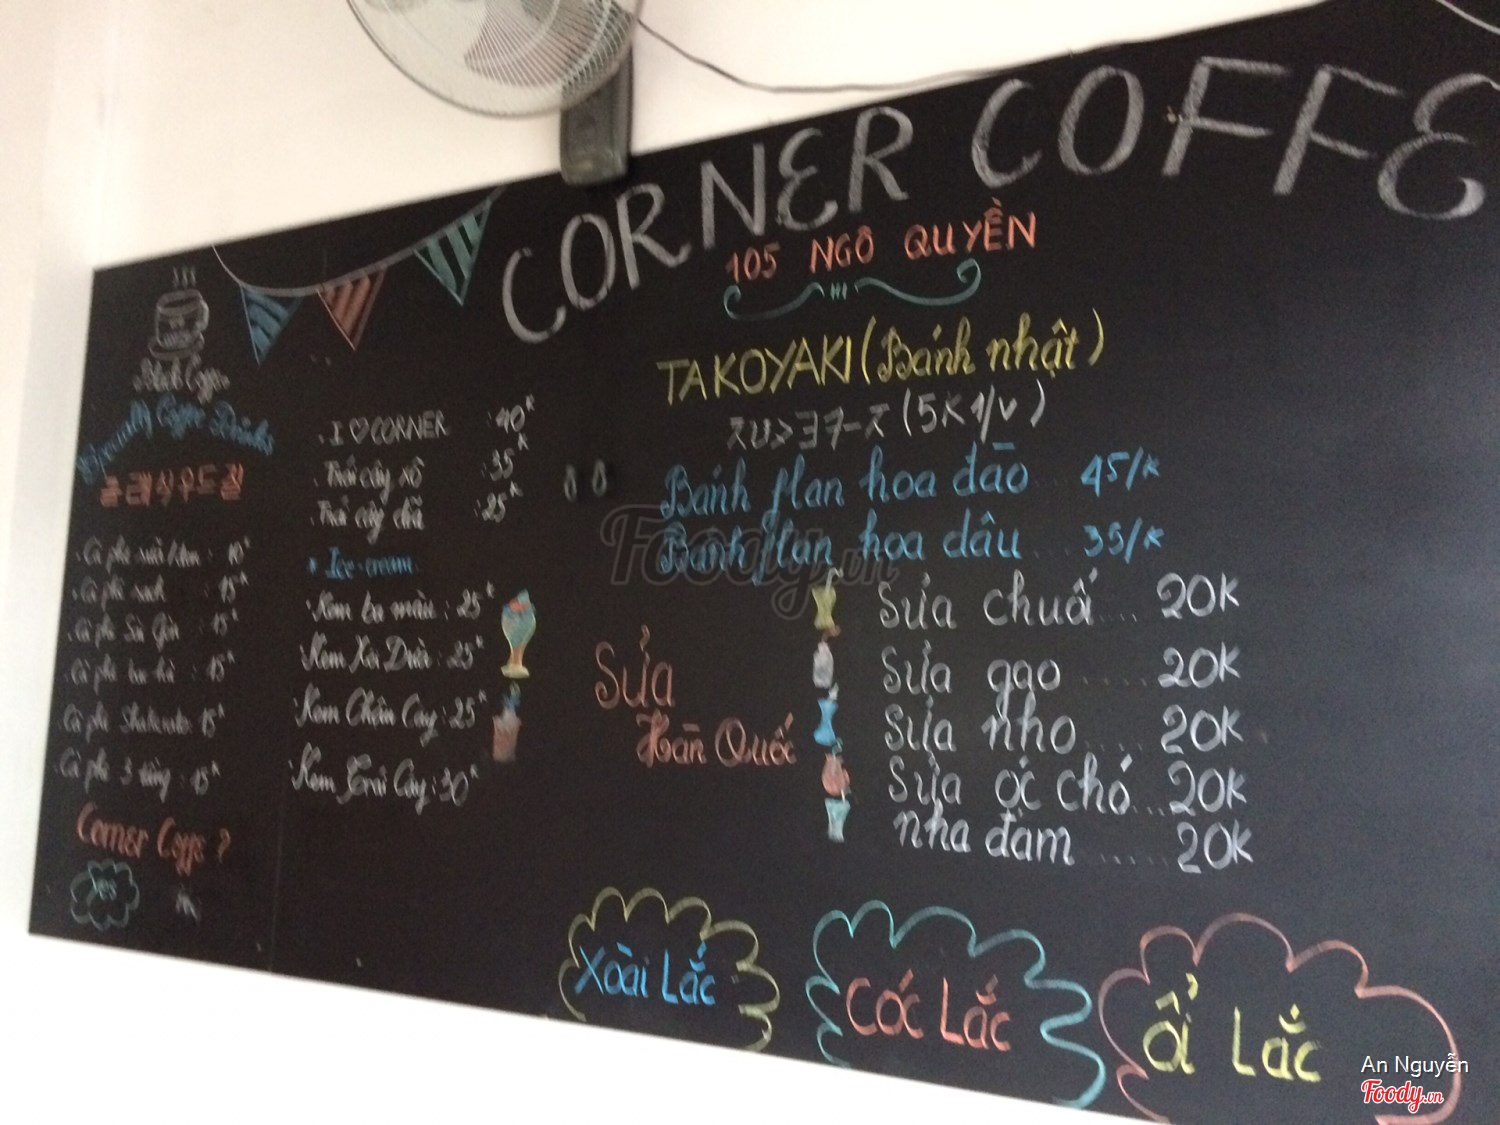 CORNER COFFE
105 NGÔ QUYỀN
Black Coffee
Specialty Coffee Drinks
Cà phê sữa/đen : 10K
Cà phê : 15K
Cà phê Sài Gòn : 15K
Cà phê : 15K
Cà phê : 15K
Cà phê 3 tầng : 15K
Corner Coffe ?
Yes
I ♡ CORNER : 40K
Trái cây tô : 35K
Trái cây dĩa : 25K
* Ice-cream
Kem ba màu : 25K
Kem Xôi Dừa : 25K
Kem Chân Cay : 25K
Kem Trái Cây : 30K
TAKOYAKI (Bánh nhật)
(5K 1/v)
Bánh flan hoa đào ... 45/K
Bánh flan hoa dâu ... 35/K
Sửa
Hàn Quốc
Sửa chuối ... 20K
Sửa gạo ..... 20K
Sửa nho .... 20K
Sửa óc chó ... 20K
nha đam ..... 20K
Xoài Lắc
Cóc Lắc
Ổi Lắc
An Nguyễn
Foody.vn
Foody.vn